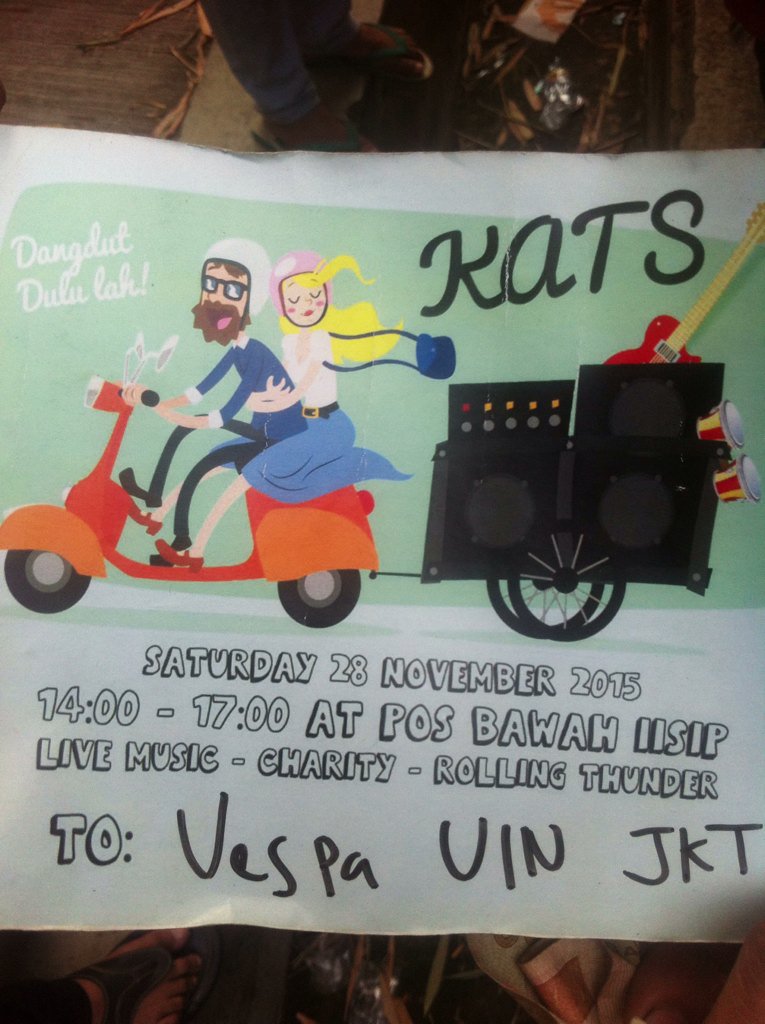 Dangdut
Dulu lah!
KATS
SATURDAY 28 NOVEMBER 2015
14:00 - 17:00 AT POS BAWAH IISIP
LIVE MUSIC - CHARITY - ROLLING THUNDER
TO: Vespa UIN JKT